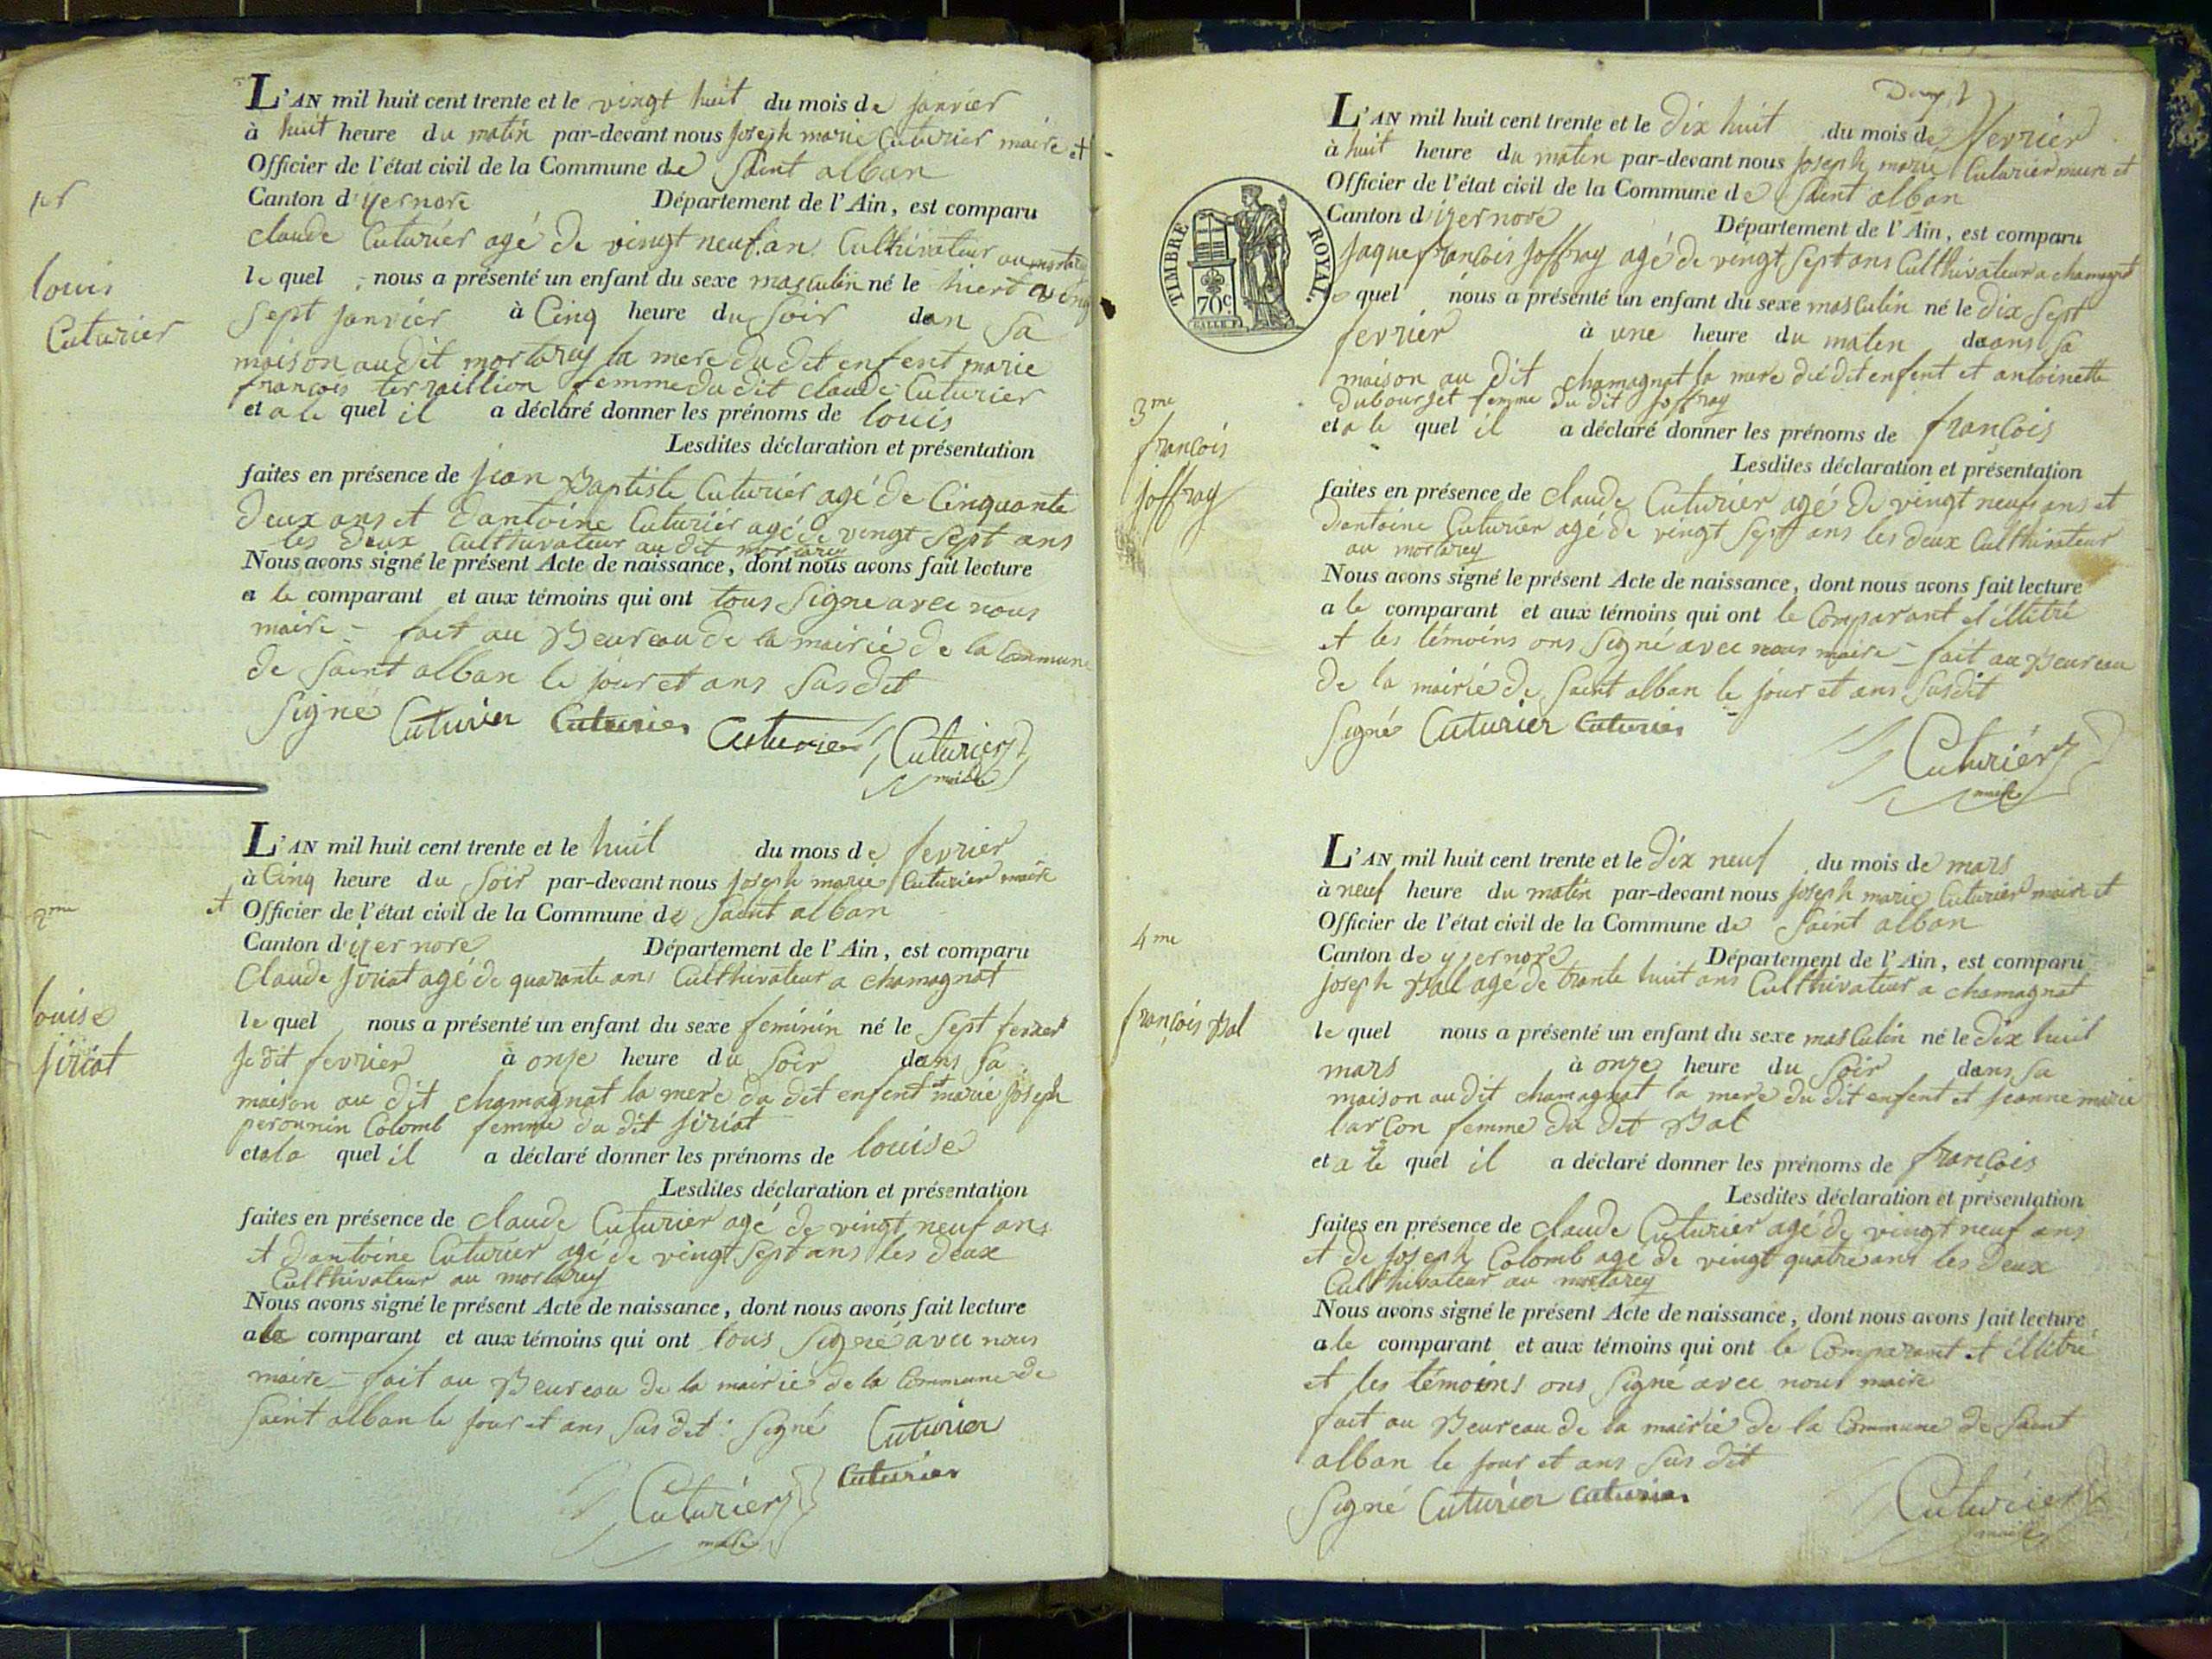 1er
louis
Cuturier
L'AN mil huit cent trente et le vingt huit du mois de janvier
à huit heure du matin par-devant nous joseph marie Cuturier maire et
Officier de l'état civil de la Commune de Saint alban
Canton d'yernore Département de l'Ain, est comparu
claude Cuturier agé de vingt neuf an Culthivateur au mortarey
le quel nous a présenté un enfant du sexe masculin né le hiert vingt
sept janvier à Cinq heure du soir dan sa
maison au dit mortarey la mere du dit enfent marie
françois terraillion femme du dit claude Cuturier
et a le quel il a déclaré donner les prénoms de louis
Lesdites déclaration et présentation
faites en présence de jean Baptiste Cuturier agé de Cinquante
deux ans et dantoine Cuturier agé de vingt sept ans
les deux Culthivateur au dit mortarey
Nous avons signé le présent Acte de naissance, dont nous avons fait lecture
a le comparant et aux témoins qui ont tous signe avec nous
maire - fait au Beureau de la mairie de la Commune
de Saint alban le jour et ans susdit
Signé Cuturier Cuturier Cuturier Cuturier
maire
2me
louise
jiriat
L'AN mil huit cent trente et le huit du mois de fevrier
à Cinq heure du soir par-devant nous joseph marie Cuturier maire
et Officier de l'état civil de la Commune de Saint alban
Canton d'yernore Département de l'Ain, est comparu
Claude jiriat agé de quarante ans Culthivateur a chamagnat
le quel nous a présenté un enfant du sexe feminin né le sept
dit fevrier à onze heure du soir dans sa
maison au dit chamagnat la mere du dit enfent et marie joseph
perounin Colomb femme du dit jiriat
et a la quel il a déclaré donner les prénoms de louise
Lesdites déclaration et présentation
faites en présence de claude Cuturier agé de vingt neuf ans
et dantoine Cuturier agé de vingt sept ans les deux
Culthivateur au mortarey
Nous avons signé le présent Acte de naissance, dont nous avons fait lecture
a le comparant et aux témoins qui ont tous signé avec nous
maire - fait au Beureau de la mairie de la Commune de
Saint alban le jour et ans sus dit : Signé Cuturier
Cuturier Cuturier
maire
L'AN mil huit cent trente et le dix huit du mois de fevrier
à huit heure du maten par-devant nous joseph marie Cuturier maire et
Officier de l'état civil de la Commune de Saint alban
Canton d'izernore Département de l'Ain, est comparu
TIMBRE ROYAL.
70c.
jaque françois joffray agé de vingt sept ans Culthivateur a chamagnat
le quel nous a présenté un enfant du sexe masculin né le dix sept
fevrier à une heure du maten dans sa
maison au dit chamagnat la mere du dit enfent et antoinette
dubourjet femme du dit joffray
3me
françois
joffray
et a le quel il a déclaré donner les prénoms de françois
Lesdites déclaration et présentation
faites en présence de claude Cuturier agé de vingt neuf ans et
dantoine Cuturier agé de vingt sept ans les deux Culthivateur
au mortarey
Nous avons signé le présent Acte de naissance, dont nous avons fait lecture
a le comparant et aux témoins qui ont le Comparant et illitré
et les témoins ons signé avec nous maire - fait au Beureau
de la mairie de Saint alban le jour et ans susdit
Signé Cuturier Cuturier
Cuturier
maire
L'AN mil huit cent trente et le dix neuf du mois de mars
à neuf heure du matin par-devant nous joseph marie Cuturier maire et
Officier de l'état civil de la Commune de Saint alban
Canton de yzernore Département de l'Ain, est comparu
4me
françois Bal
joseph Bal agé de trante huit ans Culthivateur a chamagnat
le quel nous a présenté un enfant du sexe masculin né le dix huit
mars à onze heure du soir dans sa
maison au dit chamagnat la mere du dit enfent et jeanne marie
larçon femme du dit Bal
et a le quel il a déclaré donner les prénoms de françois
Lesdites déclaration et présentation
faites en présence de claude Cuturier agé de vingt neuf ans
et de joseph Colomb agé de vingt quatre ans les deux
Culthivateur au mortarey
Nous avons signé le présent Acte de naissance, dont nous avons fait lecture
a le comparant et aux témoins qui ont le Comparant et illitré
et les témoins ons signé avec nous maire
fait au Beureau de la mairie de la Commune de Saint
alban le jour et ans sus dit
Signé Cuturier Cuturier
Cuturier
maire